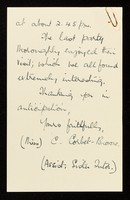 at about 2.45 pm.
The last party
thoroughly enjoyed their
visit, which we all found
extremely interesting.
Thanking you in
anticipation.
Yours faithfully,
(Miss) E. Corbet-Brown
(Assist: